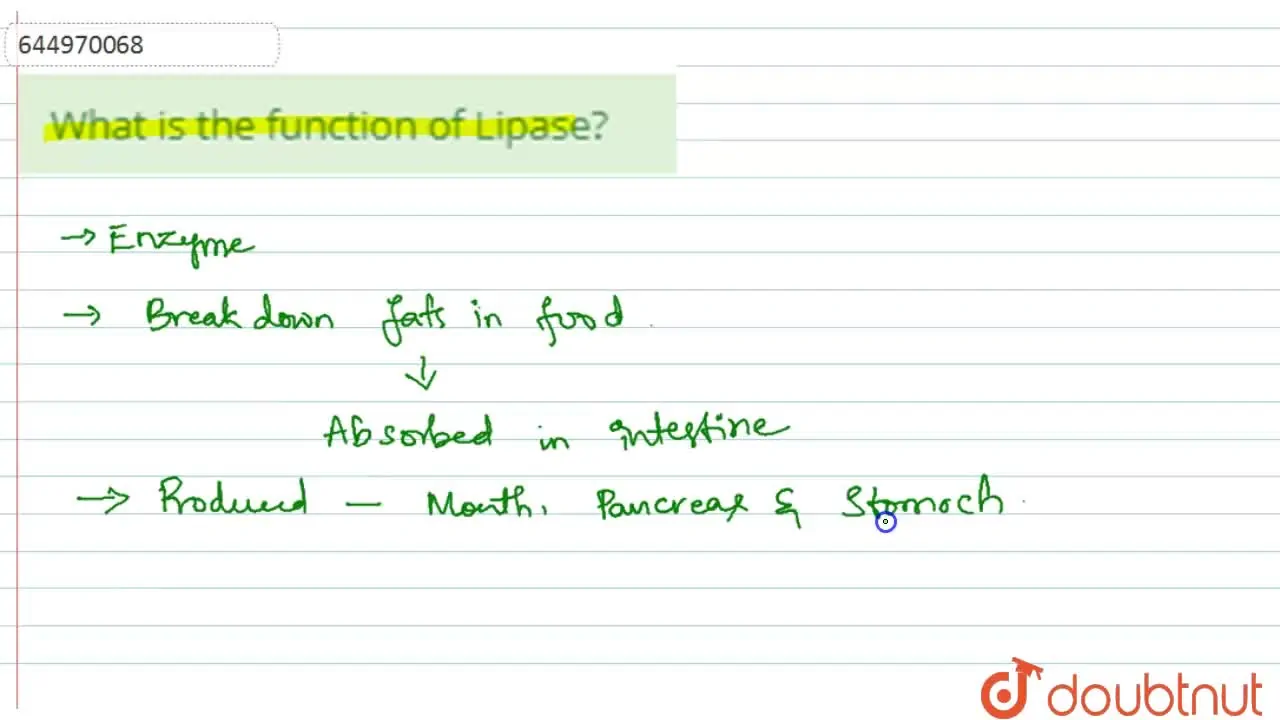 644970068
What is the function of Lipase?
→ Enzyme
→ Break down fats in food.
↓
Absorbed in intestine
→ Produced — Mouth, Pancreas & Stomach.
doubtnut